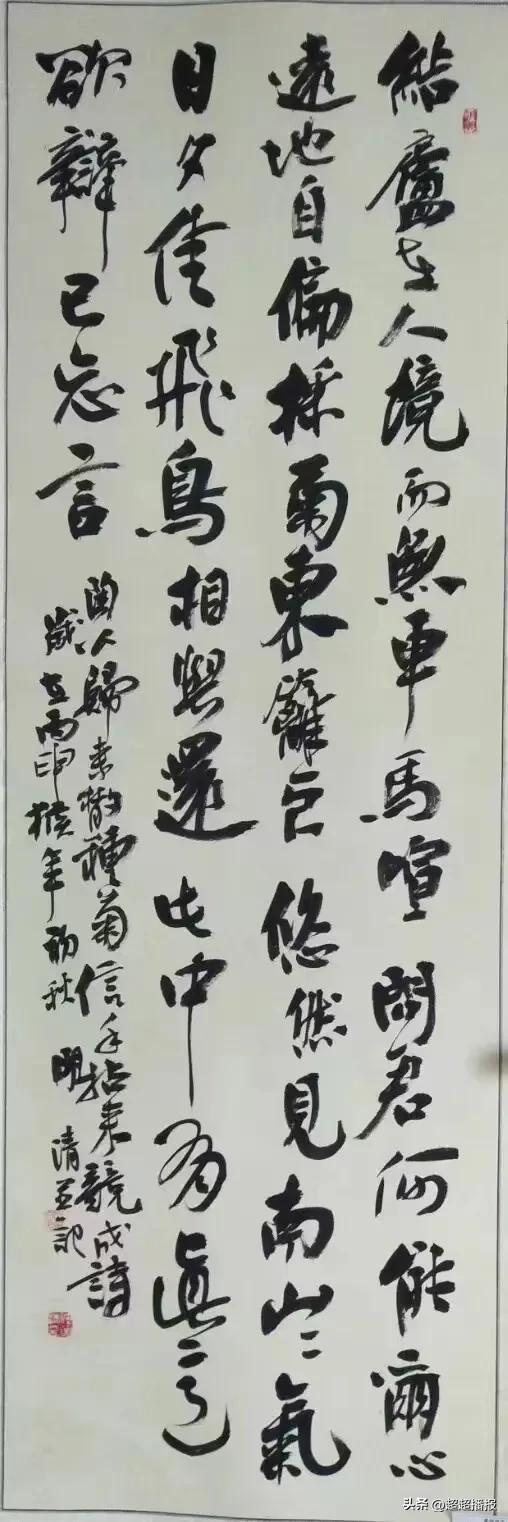 結廬在人境而無車馬喧問君何能爾心
遠地自偏採菊東籬下悠然見南山山氣
日夕佳飛鳥相與還此中有真意
欲辯已忘言
陶公歸來懶種菊信手拈來競成詩
歲在丙申猴年初秋 明清並記
头条 @超超播报